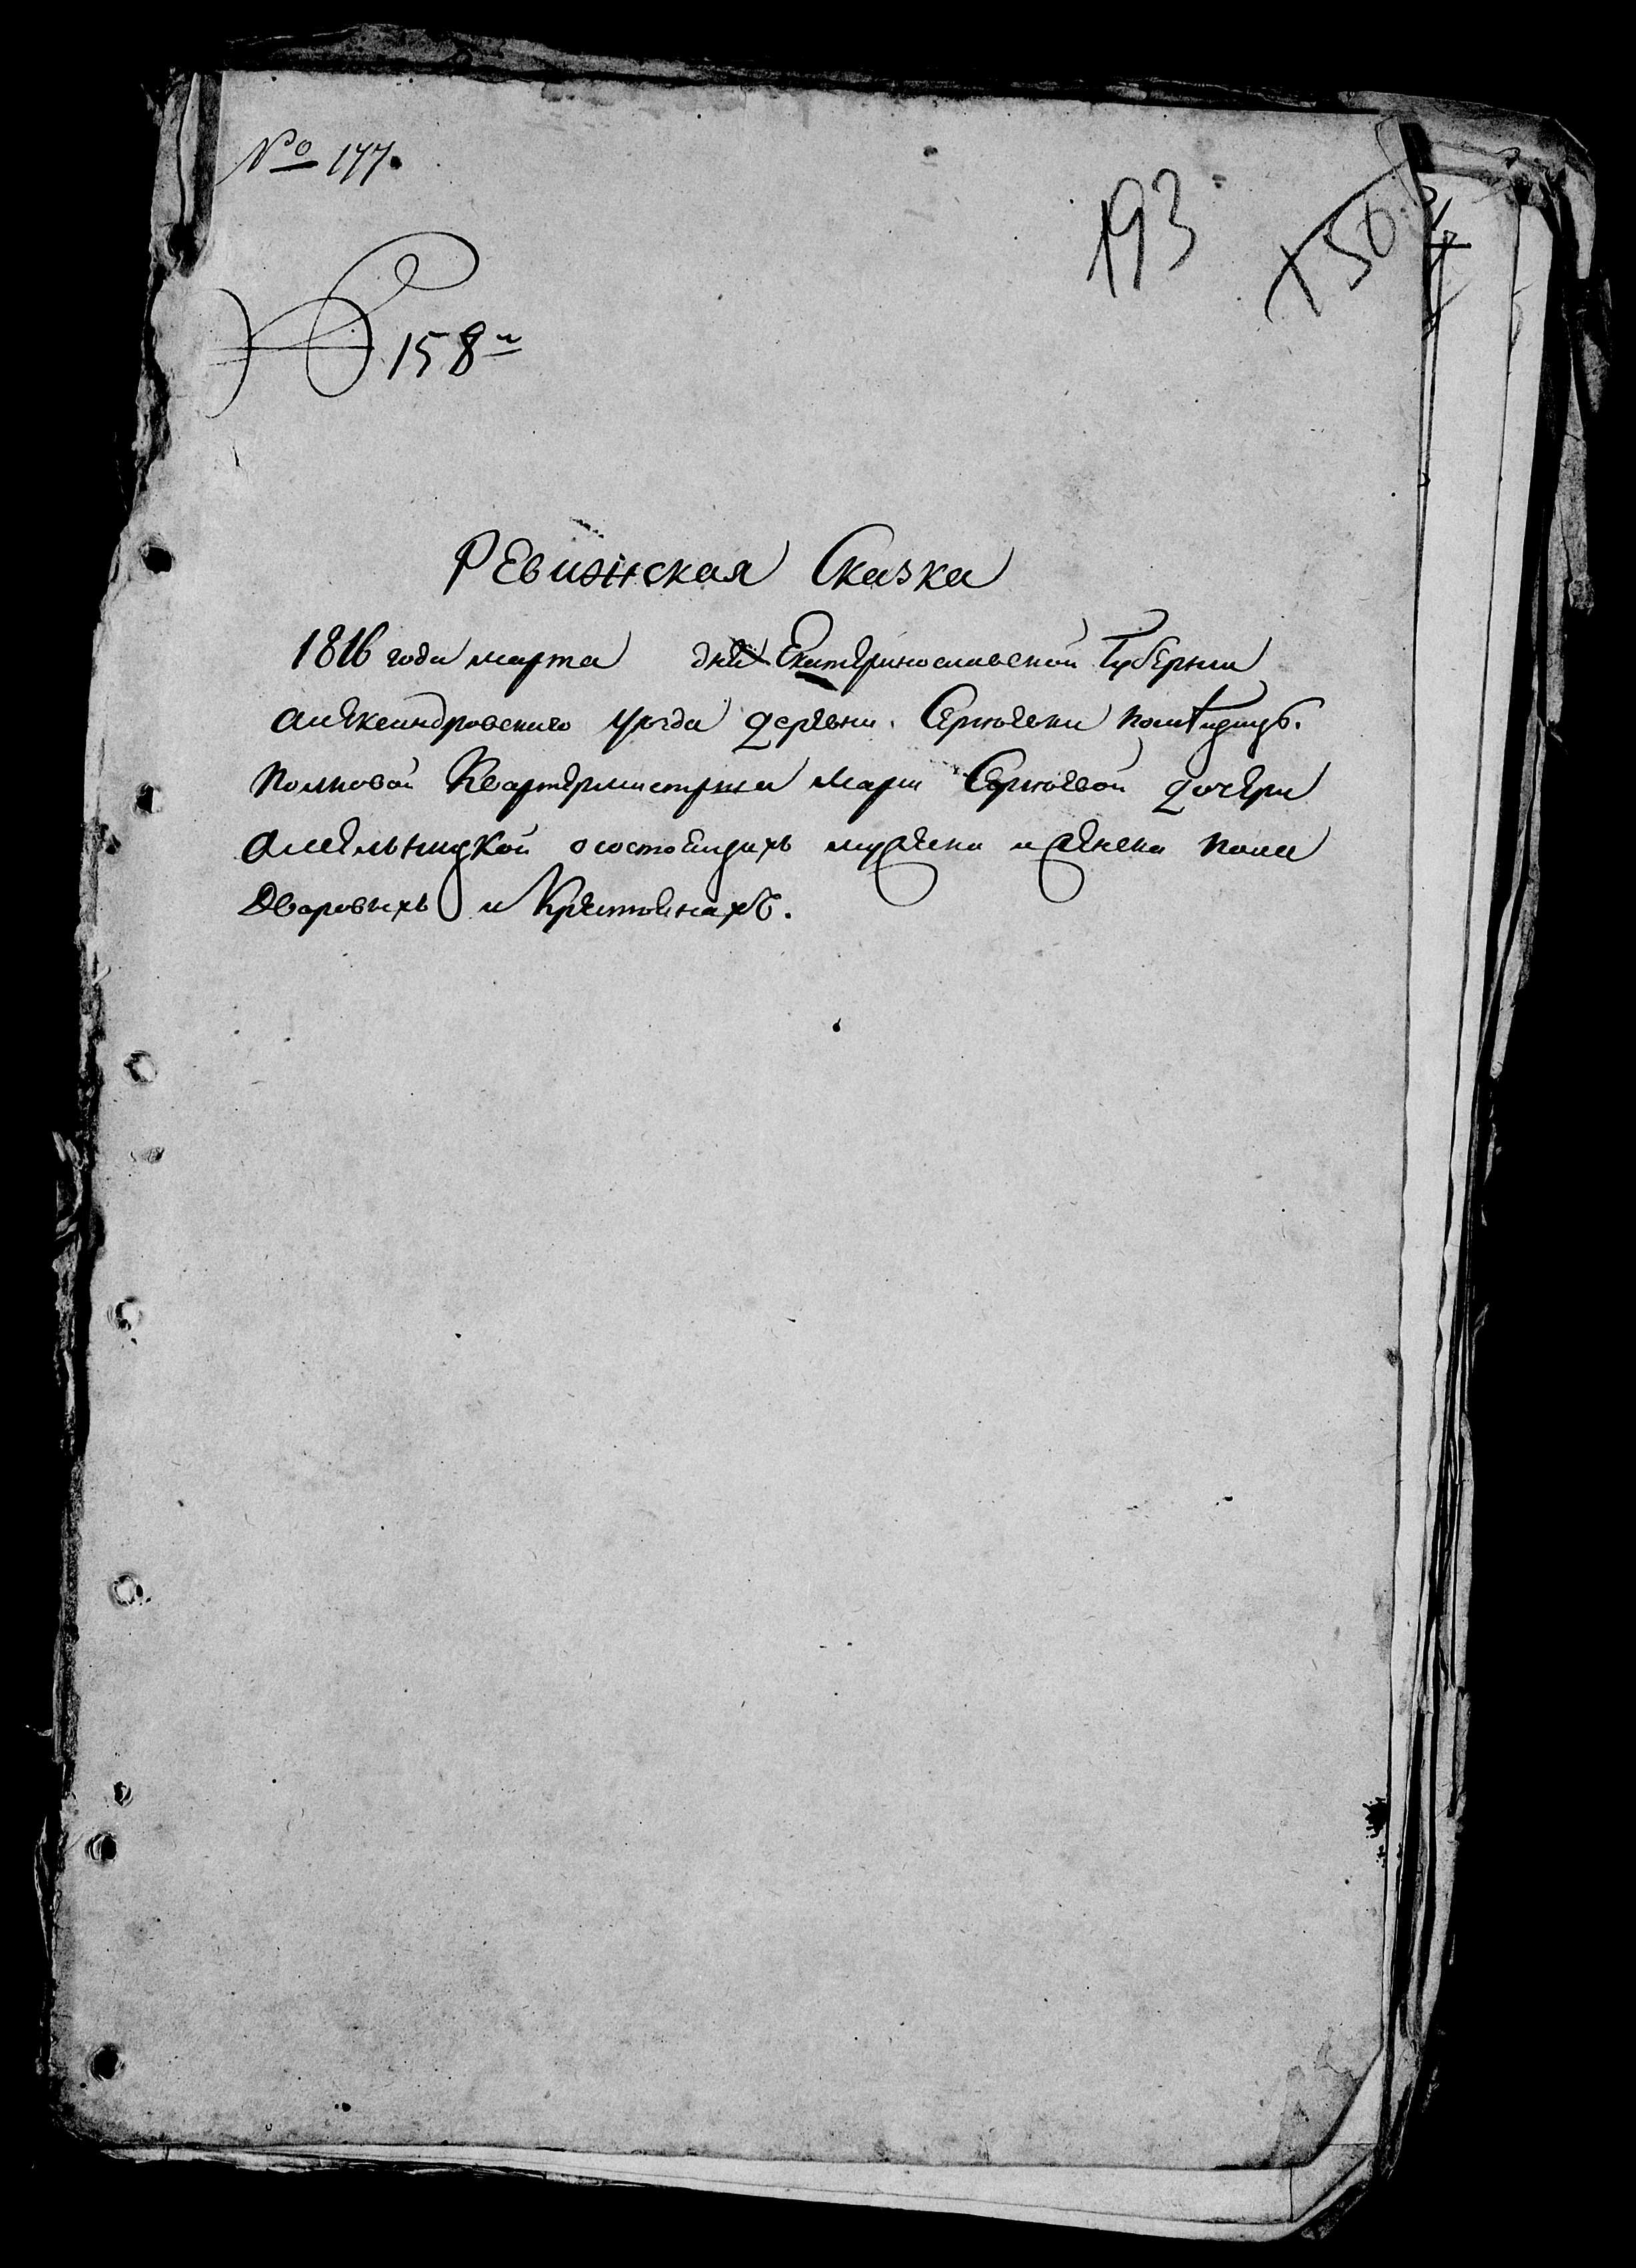 № 177.
193
158
Ревижская Сказка
1816 года марта дня Екатеринославской Губернии
александровского уезда деревни Сергеевки помещицы
полковой Квартермистрши Марии Сергеевой дочери
амельницкой осостоящихъ мужеска и женска пола
Дворовыхъ и Крестьянахъ.